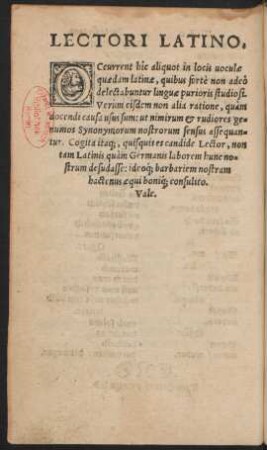 LECTORI LATINO.
OCcurrent hîc aliquot in locis uoculæ
quædam latinæ, quibus fortè non adeò
delectabuntur linguæ purioris studiosi.
Verùm eisdem non alia ratione, quàm
docendi causa usi sum: ut nimirum & rudiores ge-
nuinos Synonymorum nostrorum sensus assequan-
tur. Cogita itaq;, quisquis es candide Lector, non
tam Latinis quàm Germanis laborem hunc no-
strum desudasse: ideoq; barbariem nostram
hactenus æqui boniq; consulito.
Vale.